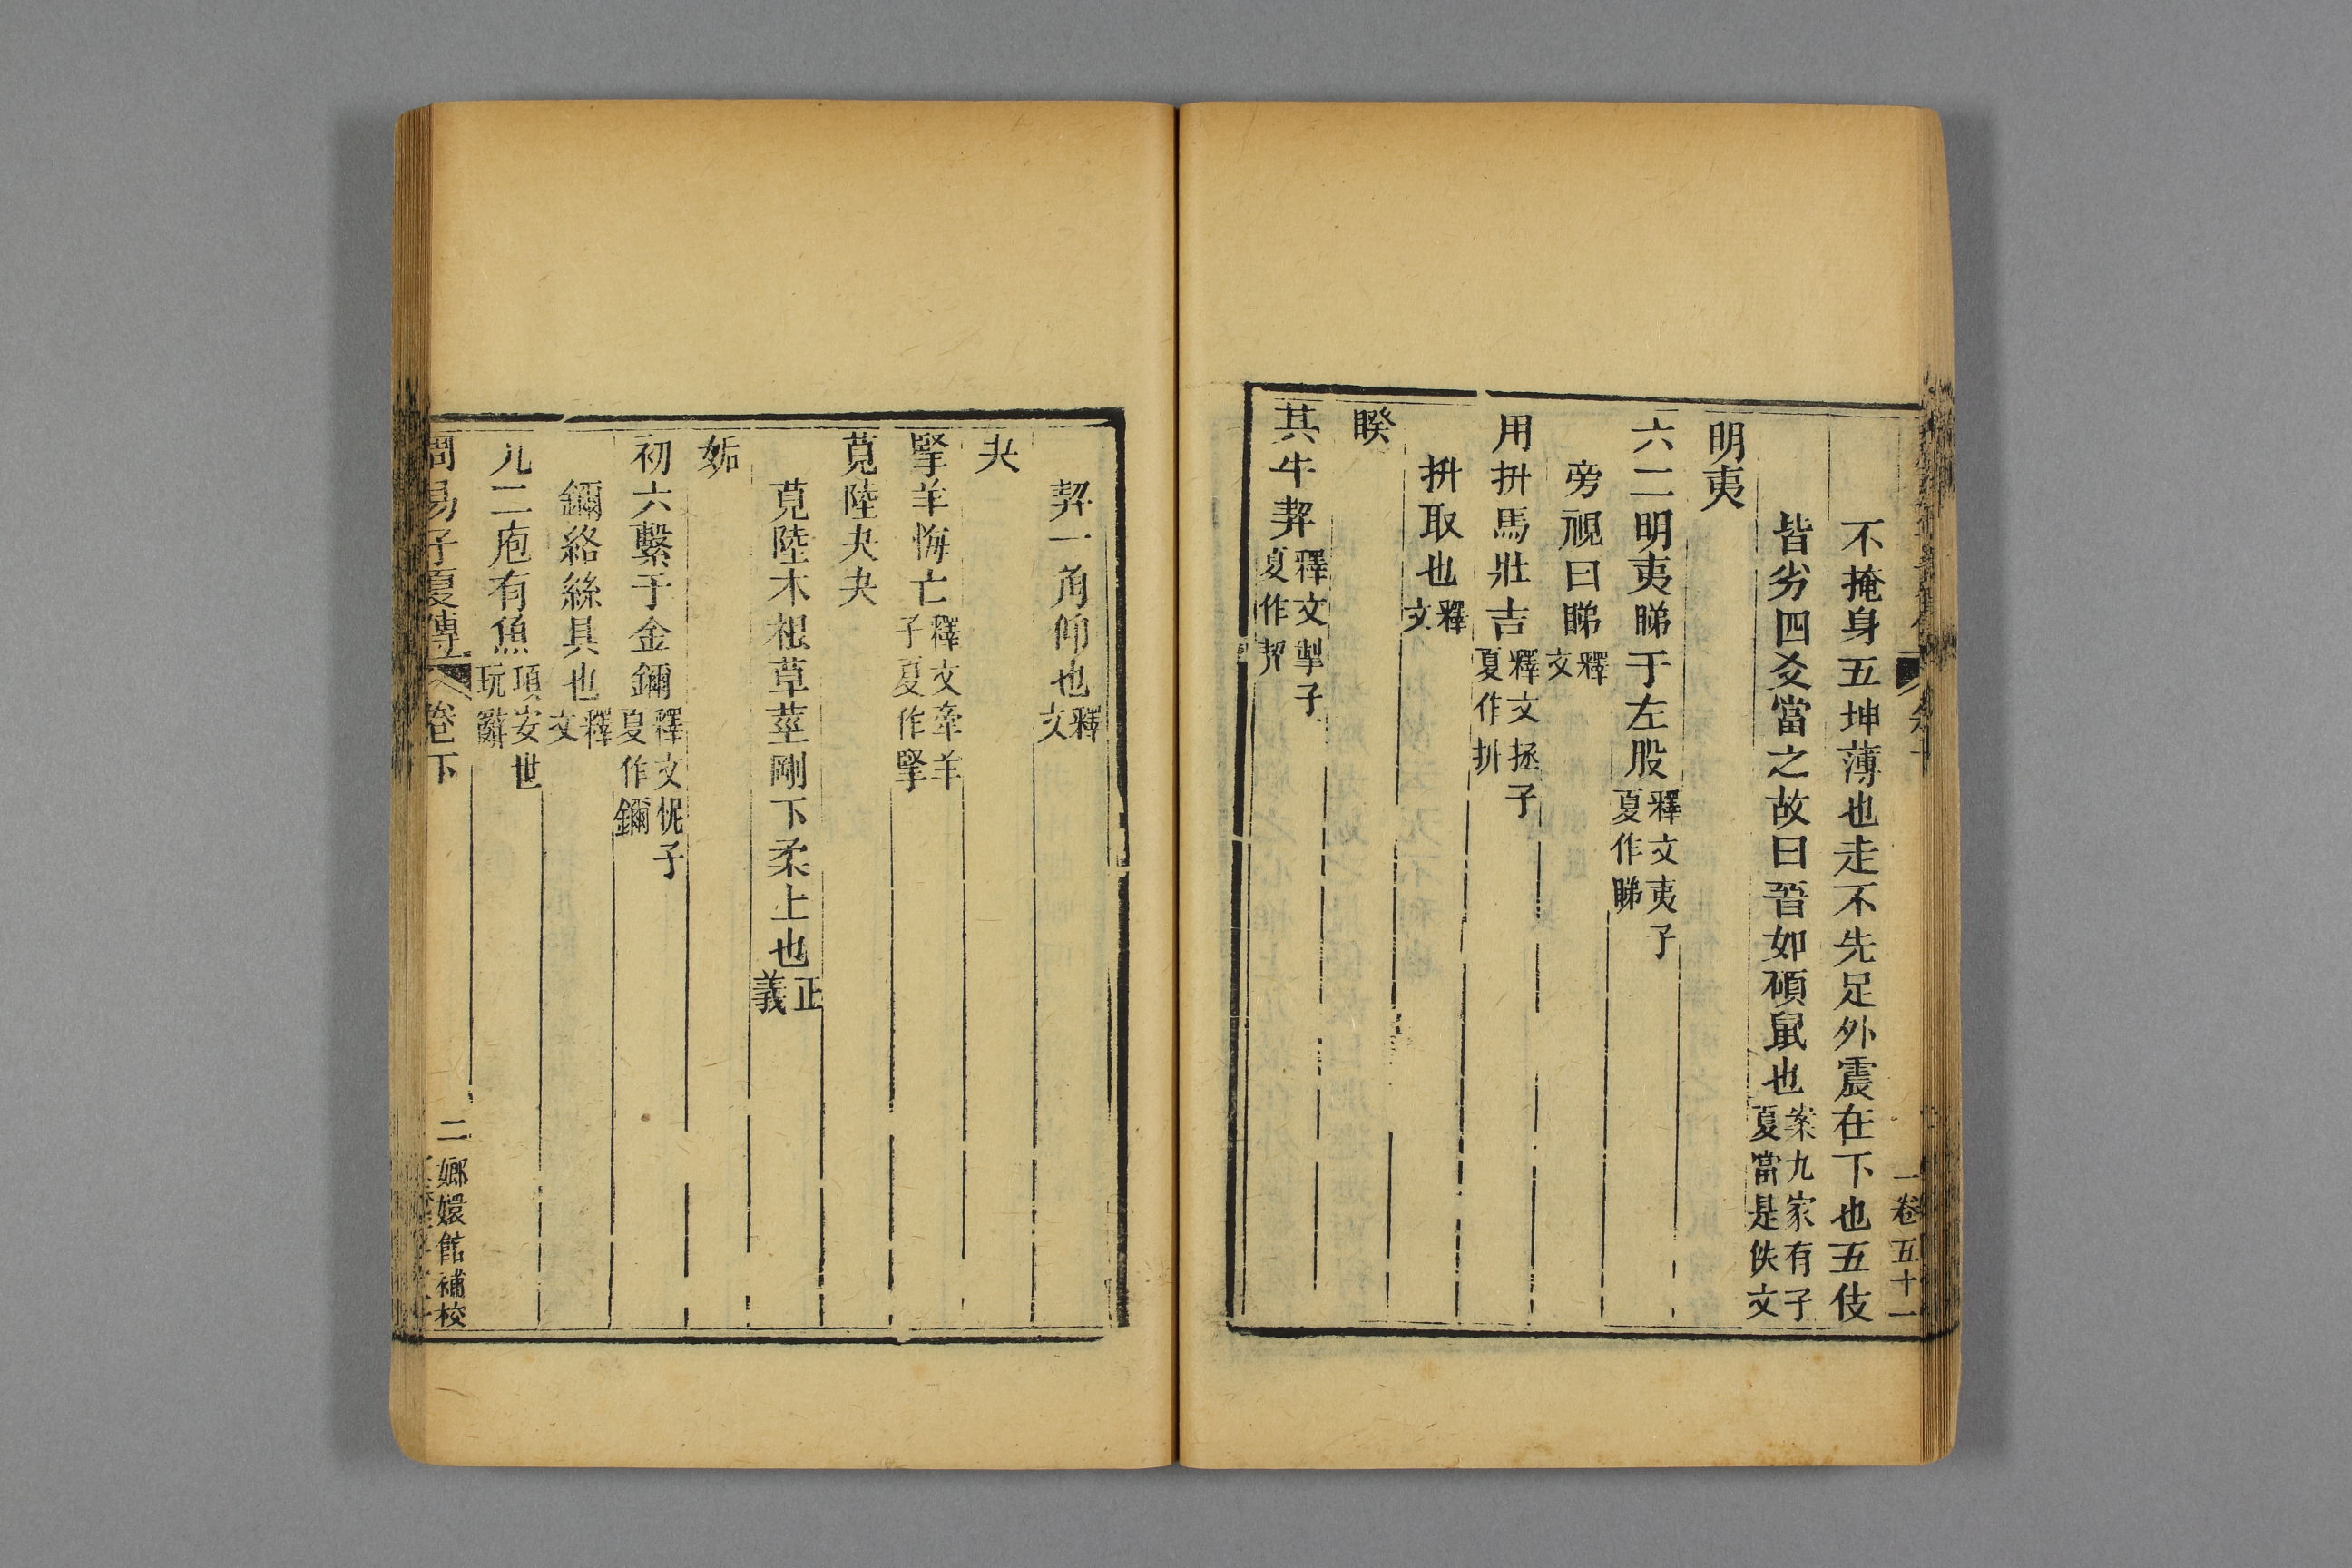 不掩身五坤薄也走不先足外震在下也五伎
皆劣四爻當之故曰晉如碩鼠也案九家有子夏當是佚文
明夷
六二明夷睇于左股釋文夷子夏作睇
旁視曰睇釋文
用抍馬壯吉釋文拯子夏作抍
抍取也釋文
睽
其牛㓞釋文掣子夏作㓞
一角仰也釋文
夬
掔羊悔亡釋文牽羊子夏作掔
莧陸夬夬
莧陸木根草莖剛下柔上也正義
姤
初六繫于金鑈釋文柅子夏作鑈
鑈絡絲具也釋文
九二庖有魚項安世玩辭
周易子夏傳 卷下
二 嫏嬛館補校
一 卷五十一